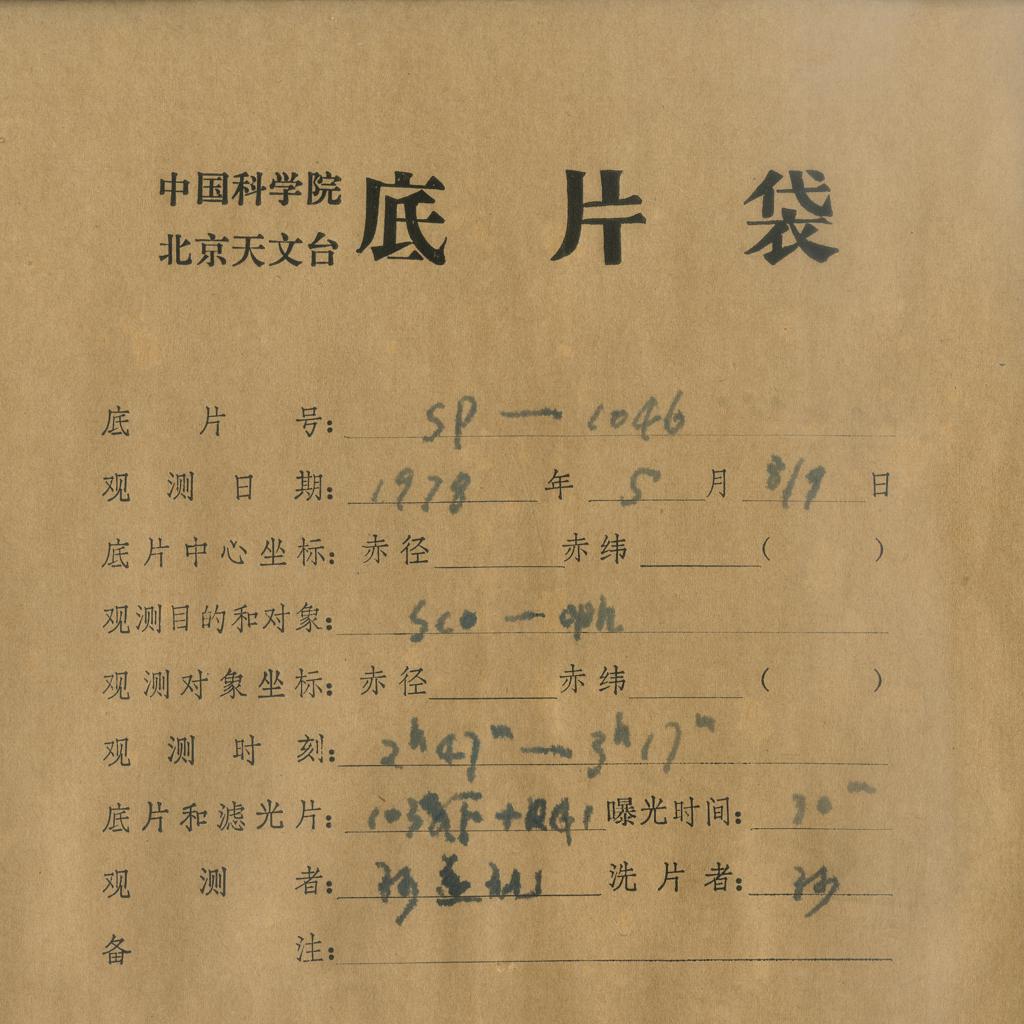 中国科学院
北京天文台
底片袋
底片号: SP — 1046
观测日期: 1978 年 5 月 8/9 日
底片中心坐标: 赤径 赤纬 ( )
观测目的和对象: Sco — oph
观测对象坐标: 赤径 赤纬 ( )
观测时刻: 2h 47m — 3h 17m
底片和滤光片: + RG1 曝光时间: 30m
观测者: 洗片者:
备注: